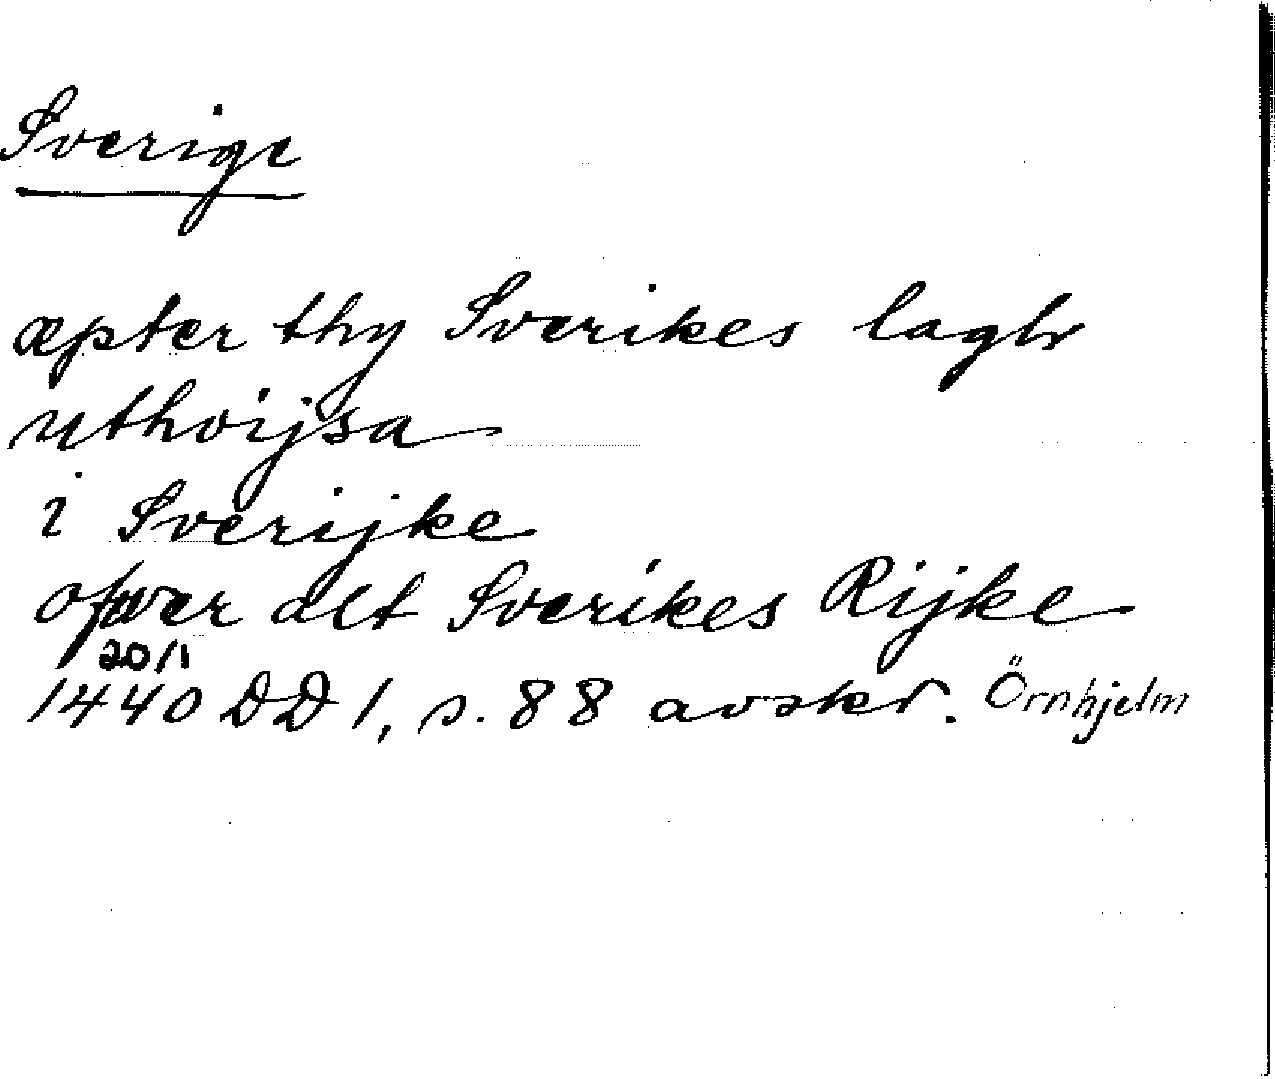 Sverige
æpter thy Sverikes lagh
uthvijsa
i Sverijke
ofwer alt Sverikes Rijke
20/1
1440 DD 1, s. 88 avskr. Örnhjelm